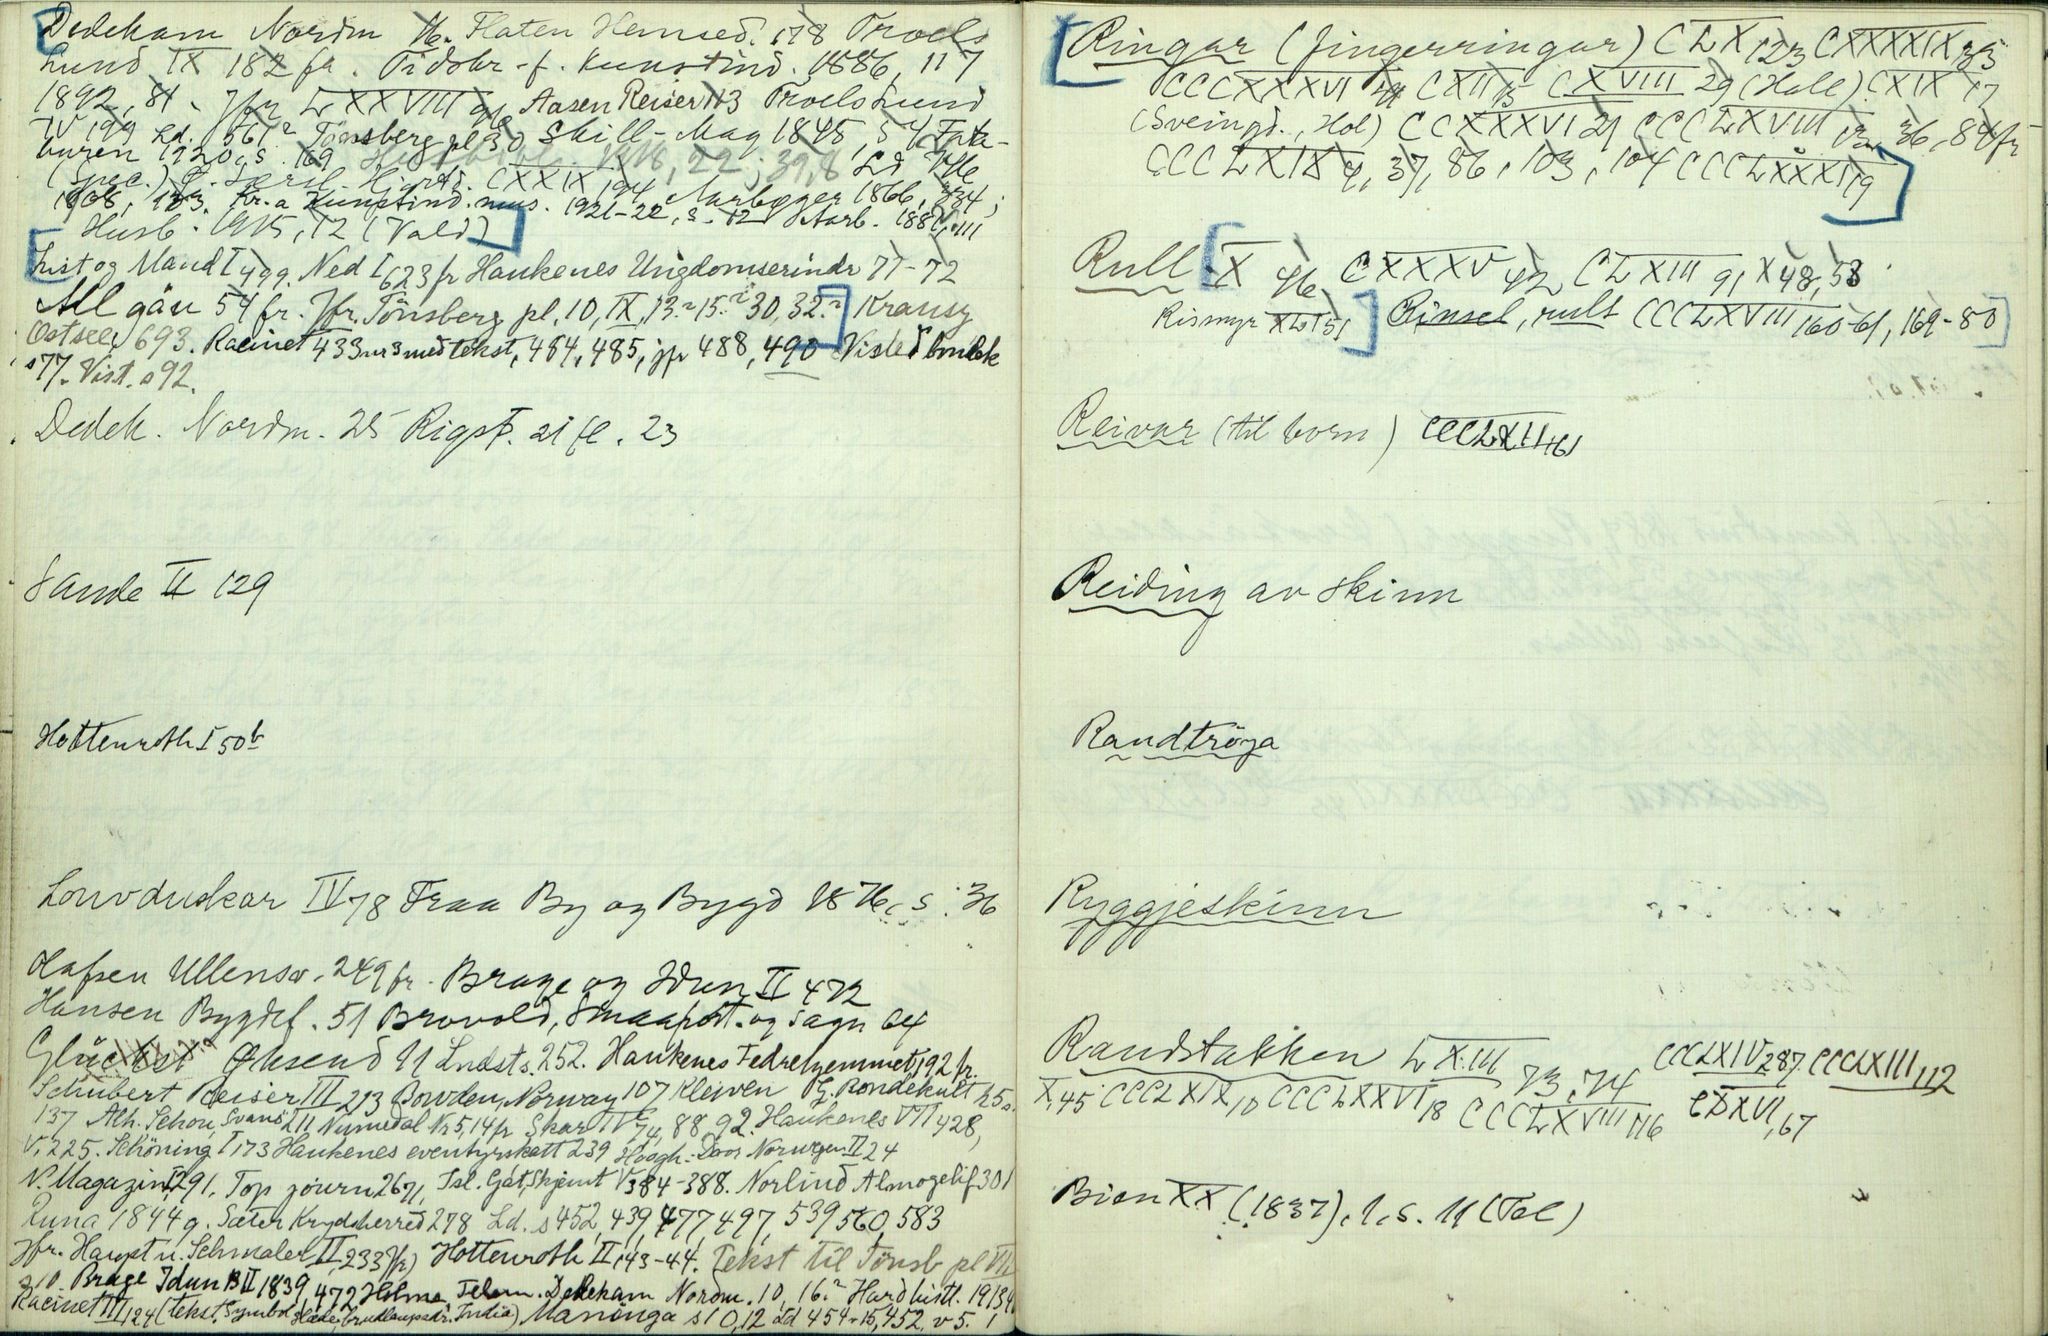 Dedekam Nordm 16. Flaten Hemsed. 178 Troels
Lund IX 182 fr. Tidskr. f. Kunstind. 1886, 117
1892, 81. Jfr LXXVIII 96 Aasen Reiser 113 Troels Lund
IV 199 Ld. 561² Tönsberg pl 30 Skill-Mag 1845, 54 Fata-
buren 1920, s. 169 1918, 22; 39,8 Ld 346
(spec.) CXXIX 194 Aarbøger 1866, 334;
1908, 183. Kr.a Kunstind. mus. 1921-22, s. 12 Aarb. 1881, 111
Husb. 1915, 12 (Vald)
List og Mand I 499. Ned I 623 fr Haukenes Ungdomserindr 71-72
All gäu 54 fr. Jfr. Tönsberg pl. 10, IX, 13.² 15.² 30, 32.² Krausz
Ostsee, 693. Racinet 433 nr 3 med tekst, 484, 485, jfr 488, 490 Visted
s 77. Vist. s 92.
Dedek. Nordm. 25 Rigsf. 21 fl. 23
Sande II 129
Hottenroth I 50 b
Louvduskar IV 78 Fraa By og Bygd 1876, s. 36
Olafsen Ullensv. 249 fr. Brage og Idun II 472
Hansen Bygdef. 51 Brovold, Smaafort. og Sagn 64
Glückst Øksend 11 Lndsts. 252. Haukenes Fedrehjemmet, 192 fr.
Schubert Reiser III 213 Bowden, Norway 107 Kleiven G. Bondekult 25
137 Alb. Schou, Svans 211 Numedal Nr 5, 14 fr Skar IV 74, 88 92. Haukenes VII 428,
V, 225. Schöning I 173 Haukenes eventyrskatt 239 Norwegen II 24
N. Magazin I 291. Top journ 26 71, V 384-388. Norlind Almogelif 301
Runa 1844 9. Sæter Krydsherred 278 Ld. s 452, 439, 477, 497, 539 560, 583
Jfr. Haupt u. Schmaler II, 233 Jfr) Hottenroth II, 43-44. Tekst til Tönsb pl VII
s 10. Brage Idun B II 1839, 472 Holme Telem. Dedekam Nordm. 10, 16.² Hard histl. 1913
Racinet III, 124 (Tekst, Symbol India) Manönga s 10, 12 Ld 454 15, 452. v 5.
Ringar (fingerringar) CLX 123 CXXXXIX 35
CCCXXXVI CXII 15 CXVIII 29 (Holl) CXIX 17
(Sveingd., Hol) CCXXXVI 21 CCCLXVIII 12, 36, 84 fr
CCCLXIX 4, 37, 86, 103, 104 CCCLXXXI 19
Rull X 46 CXXXV 42 CLXIII 91 X 48, 58
Rismyr XLI 51 Rinsel, rult CCCLXVIII 160-61, 169-80
Reivar (til born) CCCLXII 161
Reiding av skinn
Randtröja
Ryggjeskinn
Randstakken LXIII 73, 74 CCCLXIV 287 CCCLXIII, 112
X, 45 CCCLXIX, 10 CCCLXXVI 18 CCCLXVIII 116 CLXVI, 67
Bien XX (1837), 1, s. 11 (Tel)